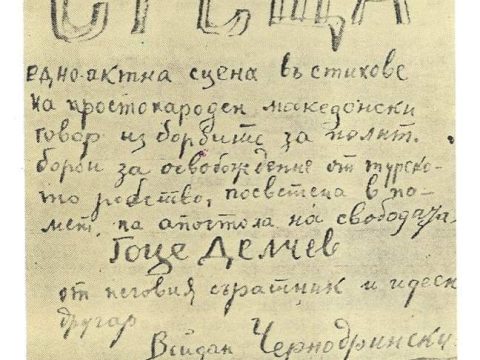 СРЕЩА
едно-актна сцена въ стихове
на простонароден македонски
говор из борбите за полит.
борби за освобождение от турско-
то робство, посветена в па-
мет на апостола на свободата
Гоце Делчев
от неговия съратник и идеен
другар
Войдан Чернодрински